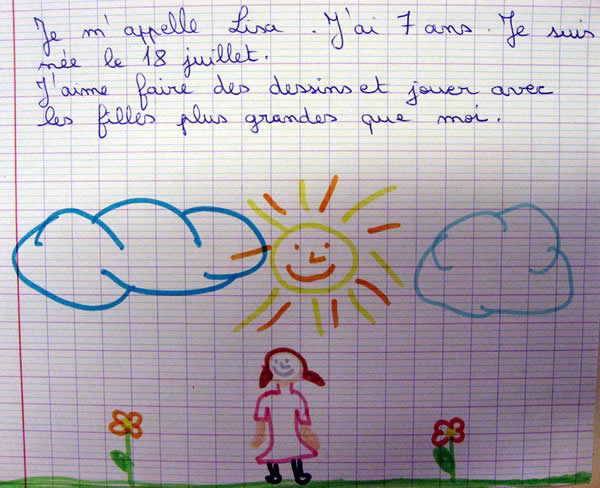 Je m'appelle Lisa. J'ai 7 ans. Je suis
née le 18 juillet.
J'aime faire des dessins et jouer avec
les filles plus grandes que moi.